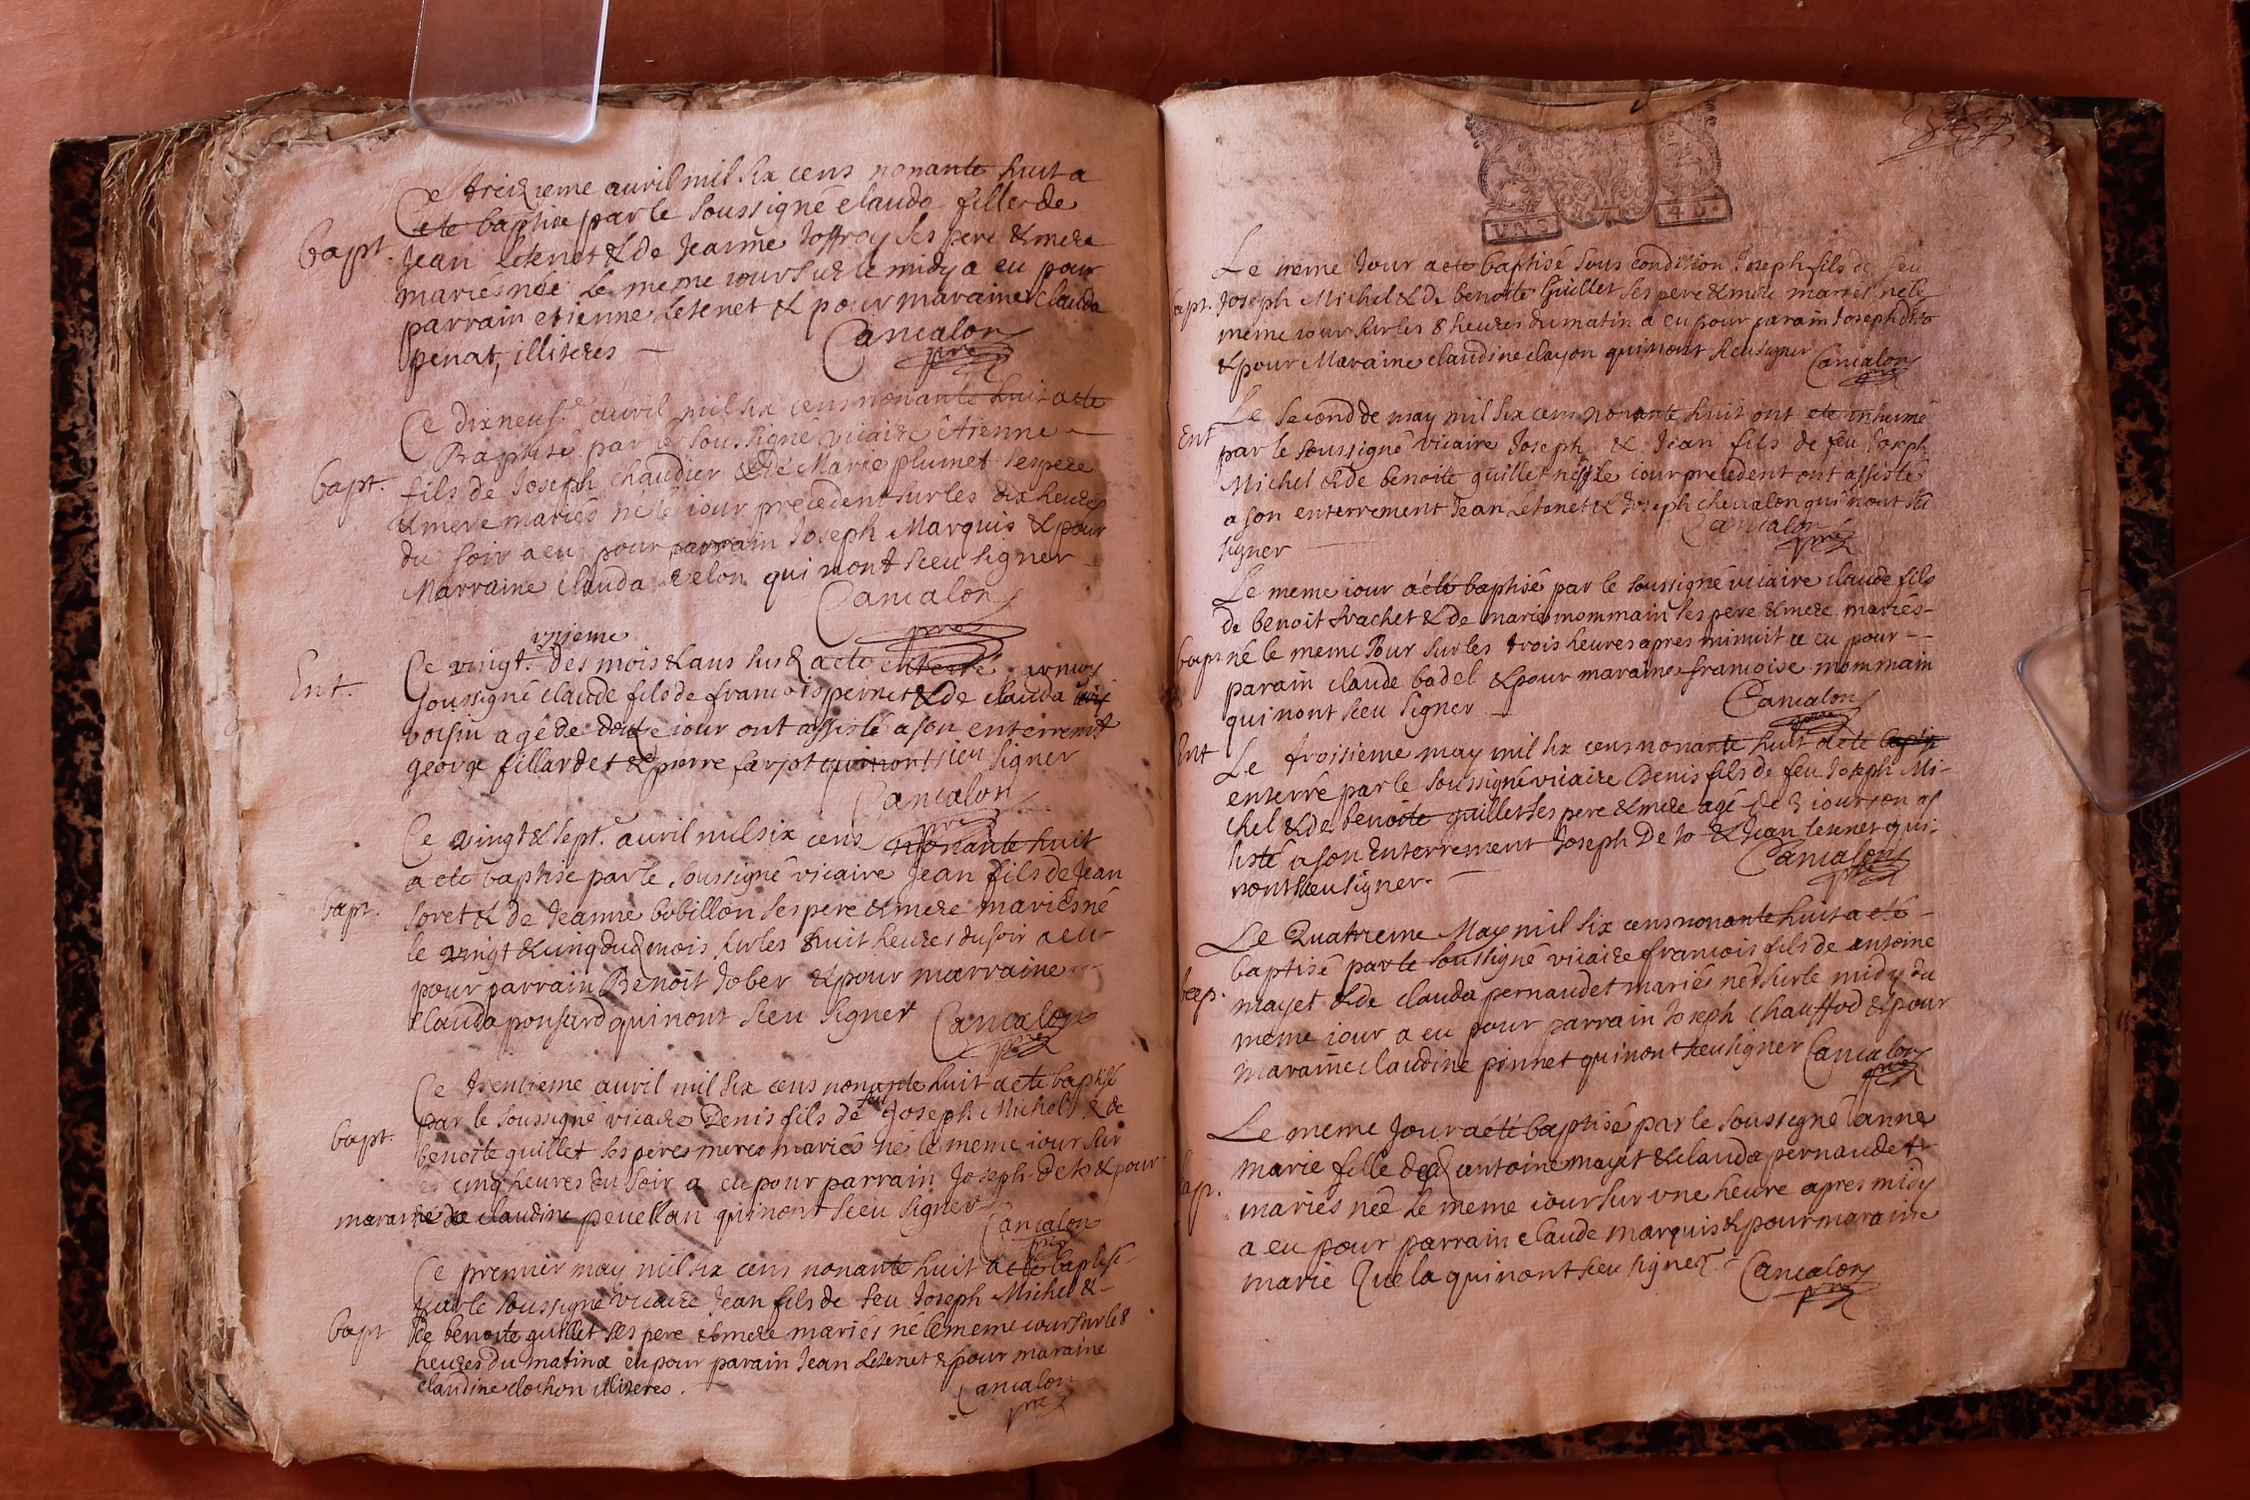 Ce treizieme auril mil six cens nonante huit a
ete baptisé par le soussigné clauda fille de
bapt. Jean Letenet & de Jeanne Joffroy ses pere & mere
mariés née le meme iour sur le midy a eu pour
parrain etienne Letenet & pour maraine clauda
penat, illiteres — Cancalon
pre
Ce dixneuf.e auril mil six cens nonante huit a ete
Baptisé par le soussigné vicaire étienne
bapt. fils de Joseph chaudier & de Marie plumet ses pere
& mere mariés né le iour precedent sur les dix heures
du soir a eu pour parrain Joseph Marquis & pour
Marraine clauda velon qui n'ont sceu signer
Cancalon
pre
vnieme
Ent. Ce vingt. des mois & ans susd a ete enterré par moy
soussigné claude fils de francois pernet & de clauda
voisin agé de douze iour ont assisté a son enterremt
george fillardet & pierre farjot qui n'ont sceu signer
Cancalon
pre
Ce vingt & sept.e auril mil six cens nonante huit
a ete baptisé par le soussigné vicaire Jean fils de Jean
bapt. soret & de Jeanne bobillon ses pere & mere mariés né
le vingt & cinq dud mois sur les huit heures du soir a eu
pour parrain Benoit Jober & pour marraine
clauda ponsard qui n'ont sceu signer Cancalon
pre
Ce trentieme auril mil six cens nonante huit a ete baptisé
par le soussigné vicaire Denis fils de feu Joseph Michel & de
bapt. benoite guillet ses peres meres mariés né le meme iour sur
cinq heures du soir a eu pour parrain Joseph deto & pour
maraine claudine peuellan qui n'ont sceu signer
Cancalon
pre
Ce premier may mil six cens nonante huit a ete baptisé
par le soussigné vicaire Jean fils de feu Joseph Michel &
bapt de benoite guillet ses pere & mere mariés né le meme iour sur les 8
heures du matin a eu pour parain Jean Letenet & pour maraine
claudine clochon illiteres. Cancalon
pre
Le meme Jour a ete baptisé sous condition Joseph fils de feu
bapt. Joseph Michel & de benoite guillet ses pere & mere mariés né le
meme iour sur les 8 heures du matin a eu pour parain Joseph deto
& pour Maraine claudine clayon qui n'ont sceu signer Cancalon
pre
Le second de may mil six cens nonante huit ont ete inhumé
Ent par le soussigné vicaire Joseph & Jean fils de feu Joseph
Michel & de benoite guillet nés le iour precedent ont assisté
a son enterrement Jean Letenet & Joseph cheualon qui n'ont sceu
signer Cancalon
pre
Le meme iour a été baptisé par le soussigné vicaire claude fils
de benoit trachet & de marie mommain ses pere & mere mariés
bapt né le meme Jour sur les trois heures apres minuit a eu pour
parain claude badel & pour maraine francoise mommain
qui n'ont sceu signer Cancalon
pre
Ent Le troisieme may mil six cens nonante huit a ete
enterré par le soussigné vicaire Denis fils de feu Joseph Mi-
chel & de benoite guillet ses pere & mere agé de 3 iours on as
sisté a son enterrement Joseph Deto & Jean Letenet qui
n'ont sceu signer. Cancalon
pre
Le Quatrieme May mil six cens nonante huit a eté
baptisé par le soussigné vicaire francois fils de antoine
bap. mayet & de clauda pernaudet mariés né sur le midy du
meme iour a eu pour parrain Joseph chauffod & pour
maraine claudine pinnet qui n'ont sceu signer Cancalon
pre
Le meme Jour a été baptisé par le soussigné anne
marie fille de antoine mayet & clauda pernaudet
bap. mariés née Le meme iour sur une heure apres midy
a eu pour parrain claude marquis & pour maraine
marie Quela qui n'ont sceu signer Cancalon
pre